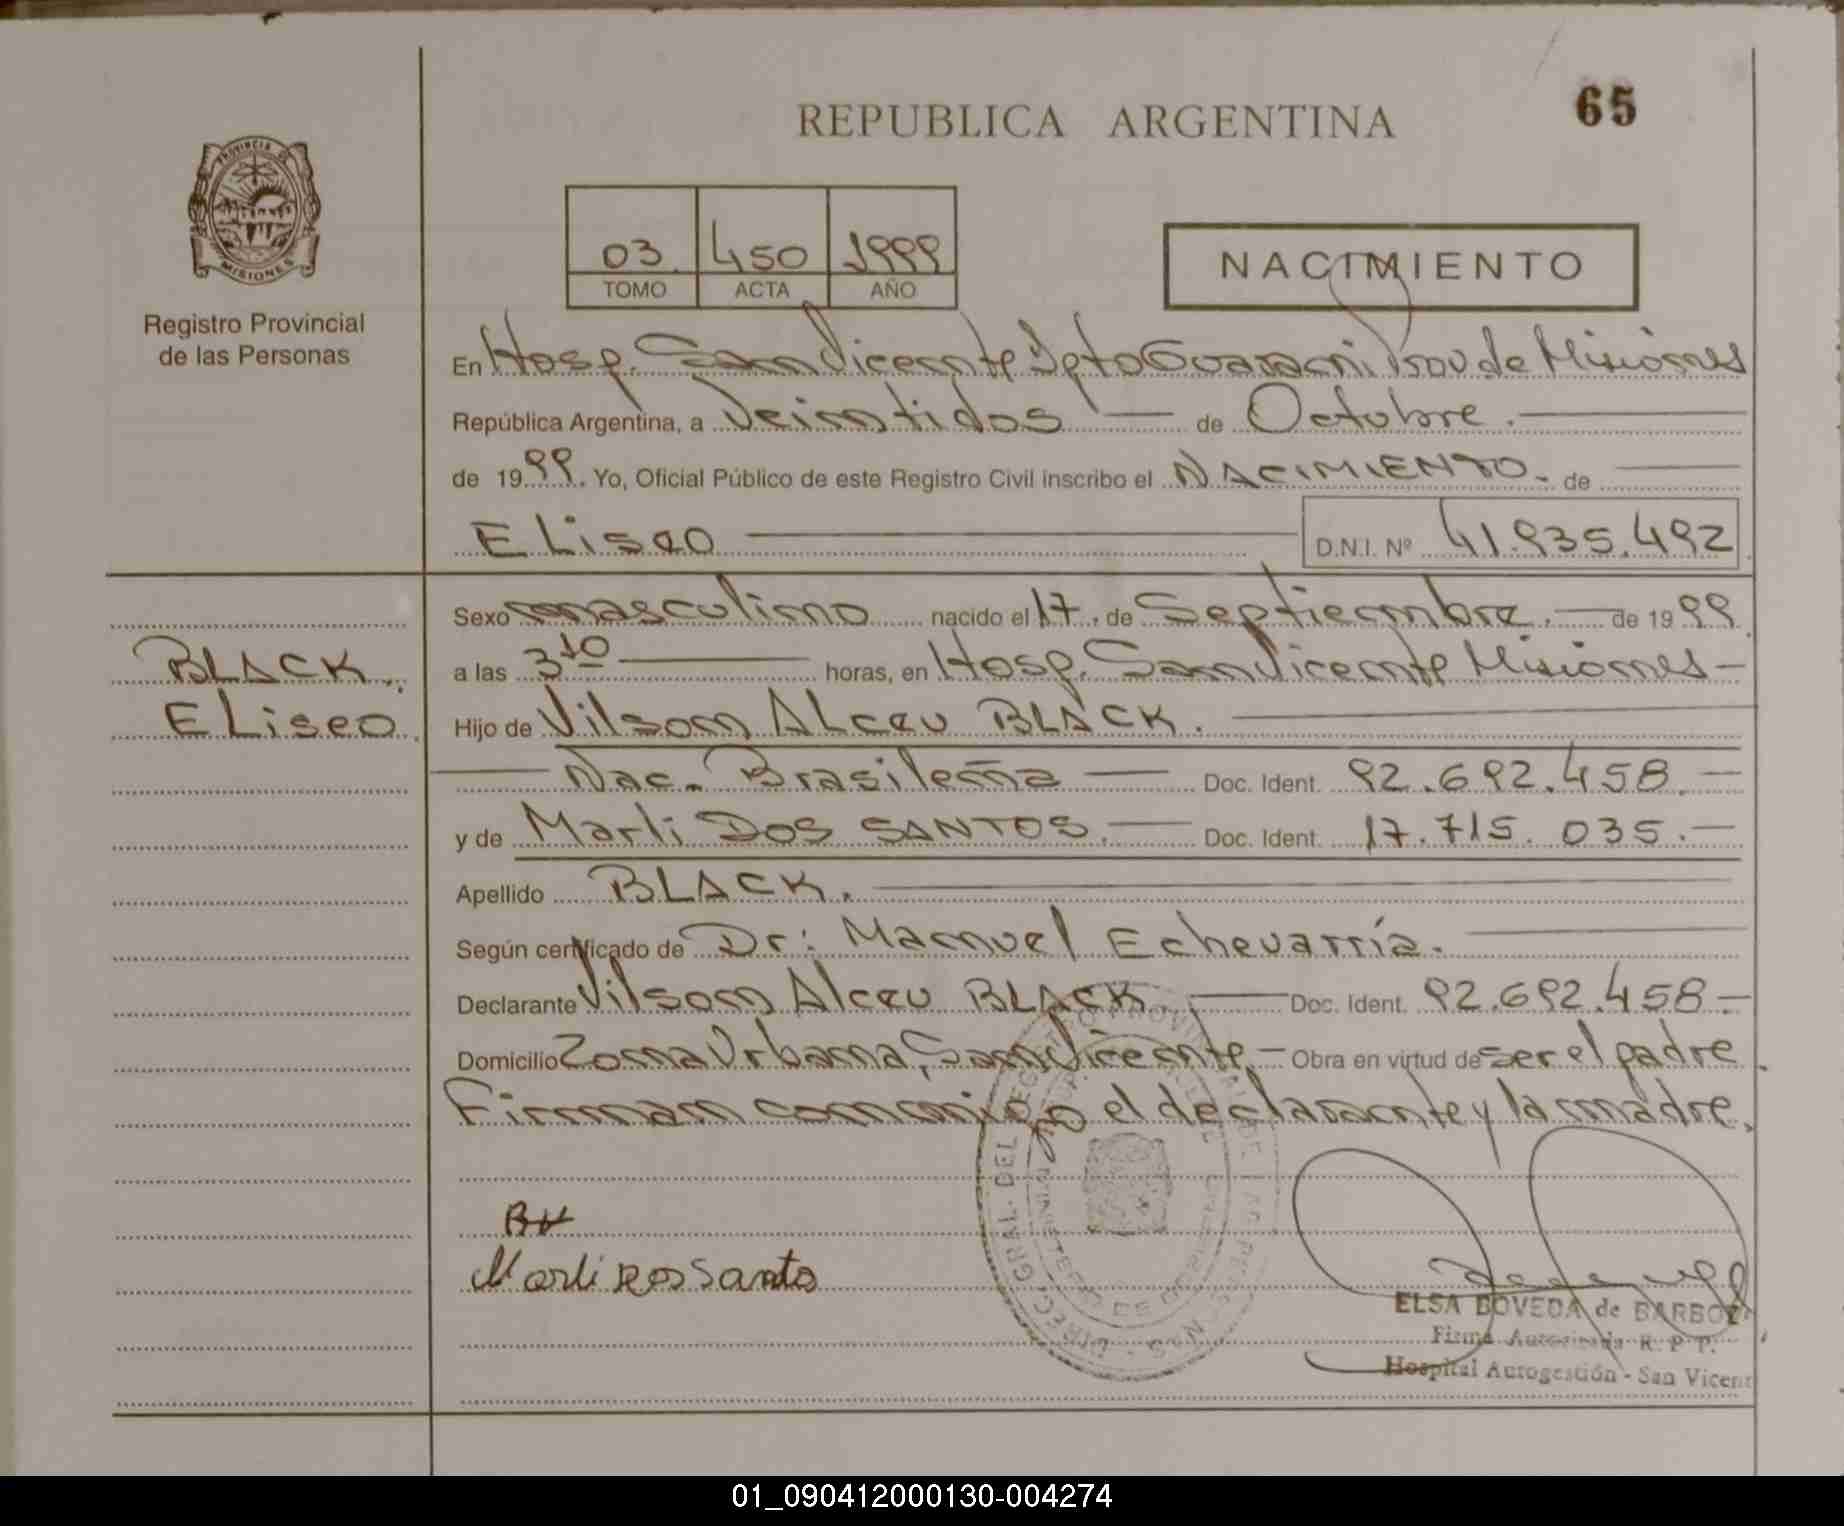 65
REPUBLICA ARGENTINA
PROVINCIA DE
MISIONES
Registro Provincial
de las Personas
03 450 1999
TOMO ACTA AÑO
NACIMIENTO
En Hosp. San Vicente Dpto Guaraní Prov de Misiones
República Argentina, a Veintidos de Octubre.
de 1999. Yo, Oficial Público de este Registro Civil inscribo el NACIMIENTO - de
Eliseo D.N.I. Nº 41.935.492
Sexo masculino nacido el 17. de Septiembre. de 1999
a las 3 10 horas, en Hosp. San Vicente Misiones -
BLACK.
Eliseo.
Hijo de Vilson Alceu BLACK.
Nac. Brasileña Doc. Ident. 92.692.458.
y de Marli DOS SANTOS. Doc. Ident. 17.715.035.
Apellido BLACK.
Según certificado de Dr: Manuel Echevarría.
Declarante Vilson Alceu BLACK Doc. Ident. 92.692.458 -
Domicilio Zona Urbana, San Vicente. - Obra en virtud de ser el padre
Firman conmigo el declarante y la madre.
Marli dos Santo
DIREC. GRAL. DEL REGISTRO PROVINCIAL DE LAS PERSONAS
ELSA BOVEDA de BARBOZ
Firma Autorizada R. P. P.
Hospital Autogestión - San Vicent
01_090412000130-004274